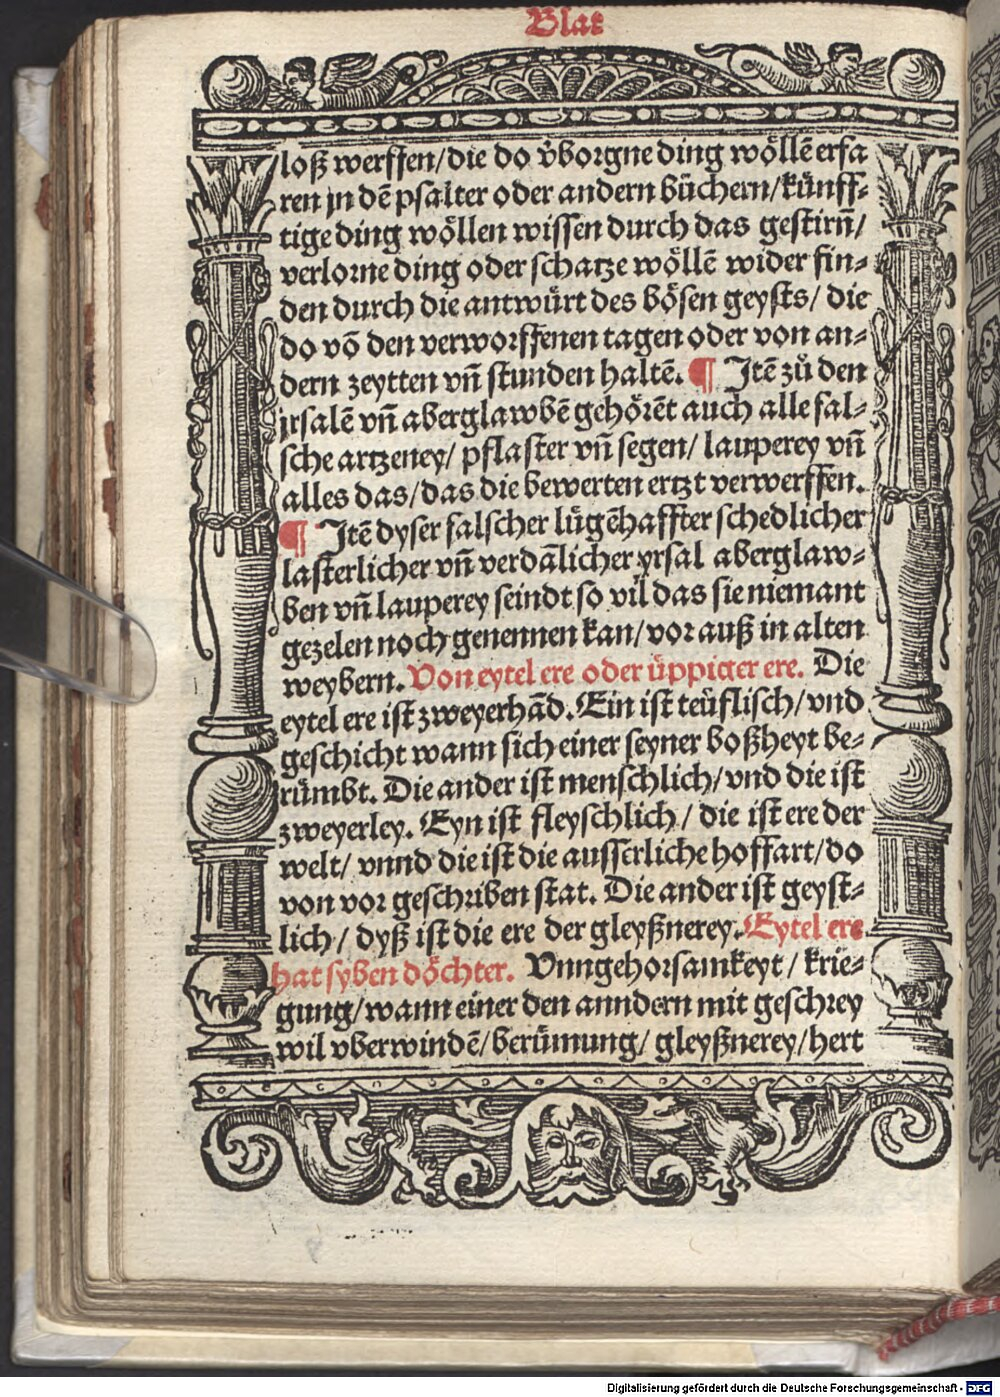 Blat
loß werffen/die do v̊borgne ding wöllē erfa
ren jn dē psalter oder andern büchern/künff⸗
tige ding wöllen wissen durch das gestirn̄/
verlorne ding oder schatze wöllē wider fin⸗
den durch die antwürt des bösen geysts/ die
do vō den verworffenen tagen oder von an⸗
dern zeytten vn̄ stunden haltē. ¶ Jtē zů den
jrsalē vn̄ aberglawbē gehörēt auch alle fal⸗
sche artzeney/ pflaster vn̄ segen/ lauperey vn̄
alles das/das die bewerten ertzt verwerffen.
¶ Jtē dyser falscher lügēhaffter schedlicher
lasterlicher vn̄ verdālicher yrsal aberglaw⸗
ben vn̄ lauperey seindt so vil das sie niemant
gezelen noch genennen kan/vor auß in alten
weybern. Von eytel ere oder üppiger ere. Die
eytel ere ist zweyerhād. Ein ist teüflisch/vnd
geschicht wann sich einer seyner boßheyt be⸗
rümbt. Die ander ist menschlich/vnd die ist
zweyerley. Eyn ist fleyschlich/ die ist ere der
welt/ vnnd die ist die ausserliche hoffart/do
von vor geschriben stat. Die ander ist geyst⸗
lich/ dyß ist die ere der gleyßnerey. Eytel ere
hat syben döchter. Vnngehorsamkeyt/ krie⸗
gung/wann einer den anndern mit geschrey
wil vberwindē/berümung/ gleyßnerey/hert
Digitalisierung gefördert durch die Deutsche Forschungsgemeinschaft - DFG